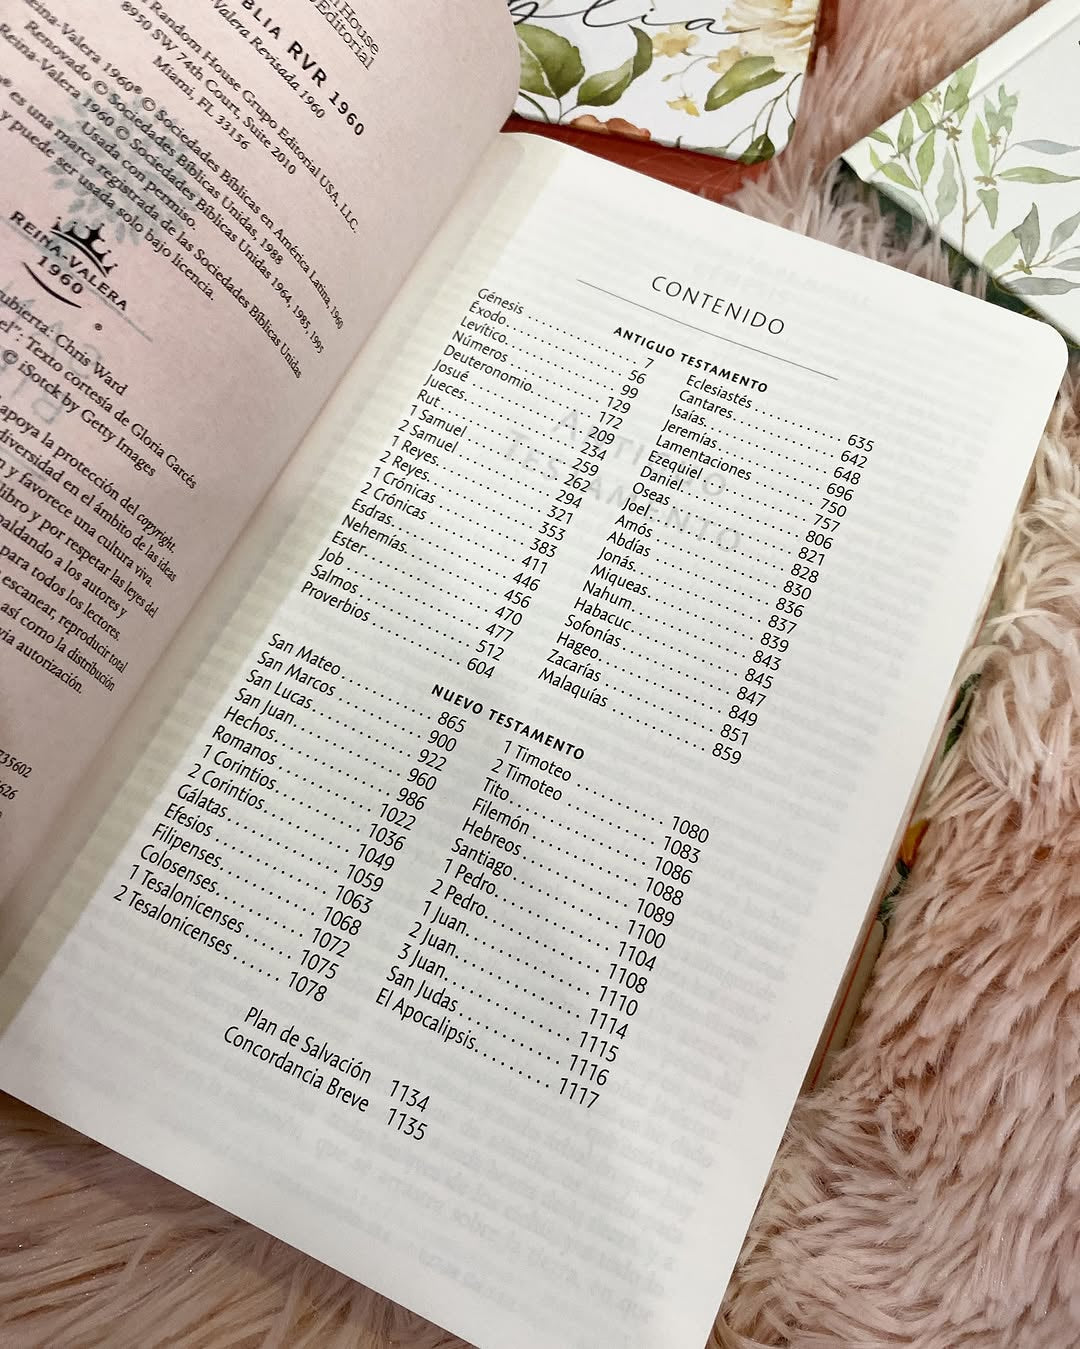 House
Editorial
BLIA RVR 1960
Valera Revisada 1960
Random House Grupo Editorial USA, LLC.
8950 SW 74th Court, Suite 2010
Miami, FL 33156
Reina-Valera 1960® © Sociedades Bíblicas en América Latina, 1960
Renovado © Sociedades Bíblicas Unidas, 1988
Reina-Valera 1960 © Sociedades Bíblicas Unidas 1964, 1985, 1995
Usada con permiso.
® es una marca registrada de las Sociedades Bíblicas Unidas
y puede ser usada solo bajo licencia.
REINA-VALERA
1960
®
Chris Ward
Texto cortesía de Gloria Garcés
© iSotck by Getty Images
apoya la protección del copyright.
diversidad en el ámbito de las ideas
y favorece una cultura viva.
libro y por respetar las leyes del
paldando a los autores y
para todos los lectores.
escanear, reproducir total
así como la distribución
autorización.
735602
CONTENIDO
ANTIGUO TESTAMENTO
Génesis 7
Éxodo 56
Levítico 99
Números 129
Deuteronomio 172
Josué 209
Jueces 234
Rut 259
1 Samuel 262
2 Samuel 294
1 Reyes 321
2 Reyes 353
1 Crónicas 383
2 Crónicas 411
Esdras 446
Nehemías 456
Ester 470
Job 477
Salmos 512
Proverbios 604
Eclesiastés 635
Cantares 642
Isaías 648
Jeremías 696
Lamentaciones 750
Ezequiel 757
Daniel 806
Oseas 821
Joel 828
Amós 830
Abdías 836
Jonás 837
Miqueas 839
Nahum 843
Habacuc 845
Sofonías 847
Hageo 849
Zacarías 851
Malaquías 859
NUEVO TESTAMENTO
San Mateo 865
San Marcos 900
San Lucas 922
San Juan 960
Hechos 986
Romanos 1022
1 Corintios 1036
2 Corintios 1049
Gálatas 1059
Efesios 1063
Filipenses 1068
Colosenses 1072
1 Tesalonicenses 1075
2 Tesalonicenses 1078
1 Timoteo 1080
2 Timoteo 1083
Tito 1086
Filemón 1088
Hebreos 1089
Santiago 1100
1 Pedro 1104
2 Pedro 1108
1 Juan 1110
2 Juan 1114
3 Juan 1115
San Judas 1116
El Apocalipsis 1117
Plan de Salvación 1134
Concordancia Breve 1135